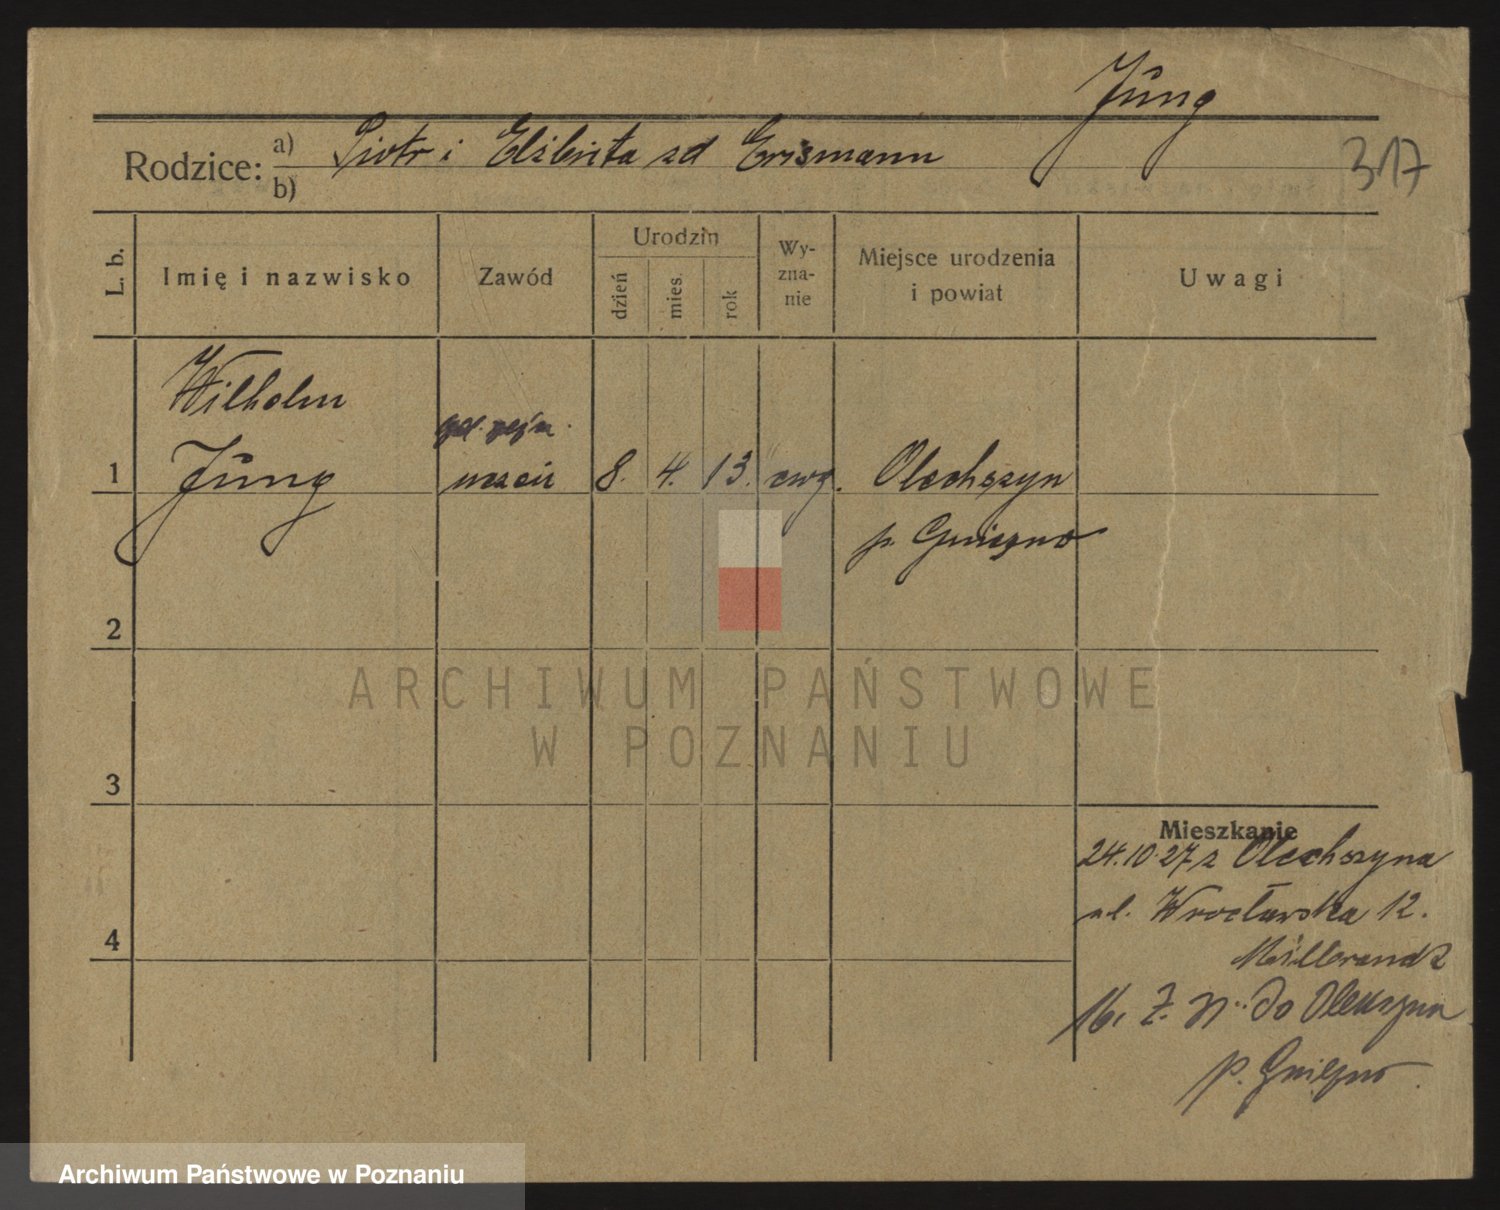 Jung
317
Rodzice: a) Piotr i Elżbieta zd Erismann
b)
L. b.
Imię i nazwisko
Zawód
Urodzin
dzień
mies.
rok
Wy-
zna-
nie
Miejsce urodzenia
i powiat
Uwagi
Wilhelm
1 Jung uczeń 8. 4. 13. ewg. Olechszyn
p. Gniezno
2
3
4
Mieszkanie
24.10.27 z Olechszyna
ul. Wrocławska 12.
Millbrandt
do
p. Gniezno
ARCHIWUM PAŃSTWOWE
W POZNANIU
Archiwum Państwowe w Poznaniu